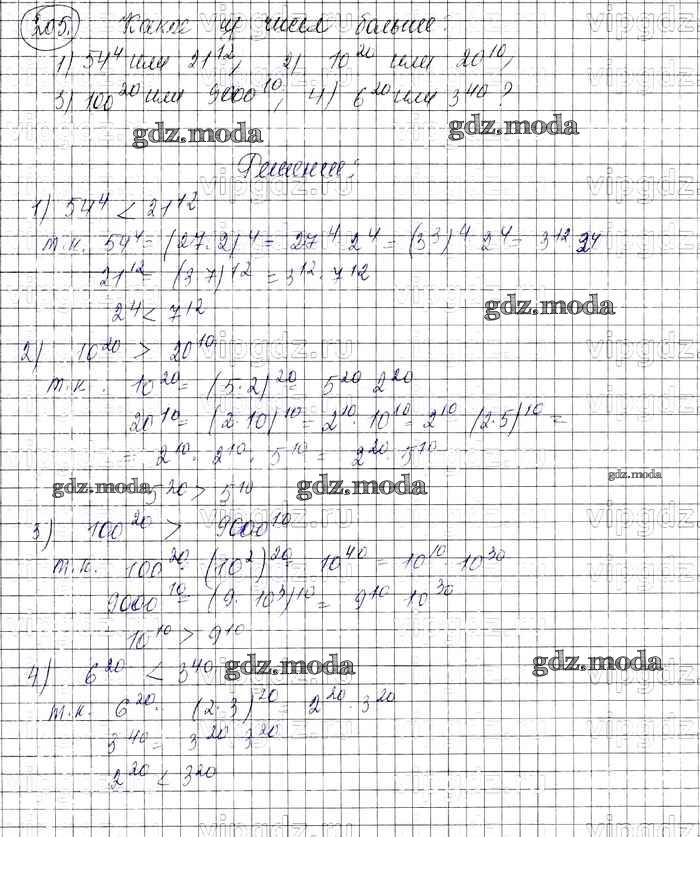 205. Какое из чисел больше:
1) 54⁴ или 21¹², 2) 10²⁰ или 20¹⁰,
3) 100²⁰ или 9000¹⁰, 4) 6²⁰ или 3⁴⁰?
gdz.moda gdz.moda
Решение:
1) 54⁴ < 21¹²
т.к. 54⁴ = (27·2)⁴ = 27⁴·2⁴ = (3³)⁴·2⁴ = 3¹² 2⁴
21¹² = (3·7)¹² = 3¹²·7¹²
gdz.moda
2⁴ < 7¹²
2) 10²⁰ > 20¹⁰
т.к. 10²⁰ = (5·2)²⁰ = 5²⁰ 2²⁰
20¹⁰ = (2·10)¹⁰ = 2¹⁰·10¹⁰ = 2¹⁰ (2·5)¹⁰ =
= 2¹⁰·2¹⁰·5¹⁰ = 2²⁰·5¹⁰
gdz.moda 5²⁰ > 5¹⁰ gdz.moda gdz.moda
3) 100²⁰ > 9000¹⁰
т.к. 100²⁰ = (10²)²⁰ = 10⁴⁰ = 10¹⁰ 10³⁰
9000¹⁰ = (9·10³)¹⁰ = 9¹⁰ 10³⁰
10¹⁰ > 9¹⁰
4) 6²⁰ < 3⁴⁰ gdz.moda gdz.moda
т.к. 6²⁰ = (2·3)²⁰ = 2²⁰·3²⁰
3⁴⁰ = 3²⁰ 3²⁰
2²⁰ < 3²⁰